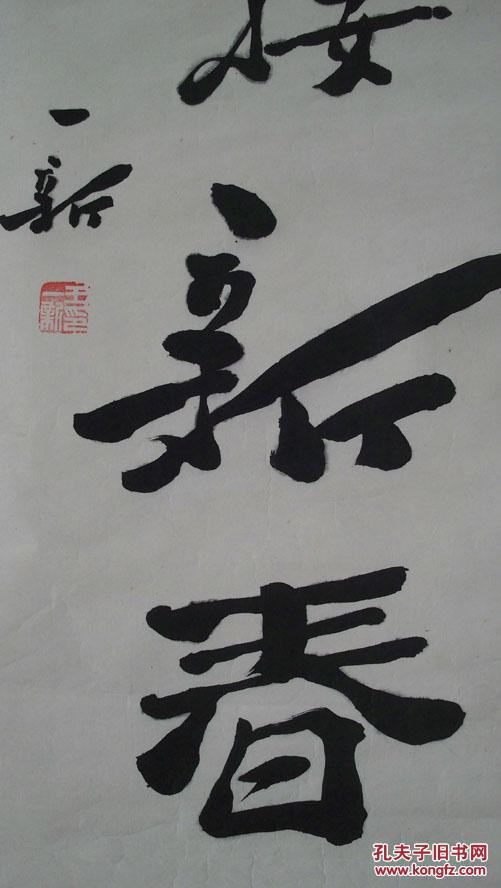 接新春
一新
孔夫子旧书网
www.kongfz.com